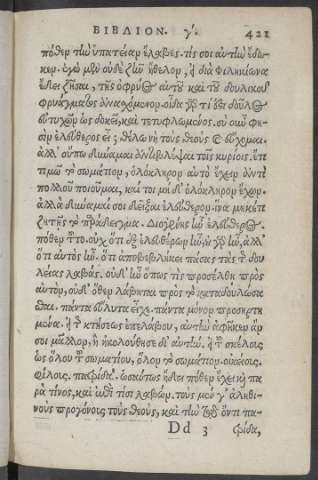 ΒΙΒΛΙΟΝ. γ'. 421
πόθεν τὴν ὑπατείαν ἔλαβες. τίς σοι αὐτὴν ἔδω-
κεν. ἐγὼ μὲν οὐδὲ ζῆν ἤθελον, ἢ διὰ Φιληκίωνα
ἔδει ζῆσαι, τῆς ὀφρύος αὐτοῦ καὶ τοῦ δουλικοῦ
φρυάγματος ἀνασχόμενον. οἶδα γὰρ τί ἐστι δοῦλος
εὐτυχῶν ὡς δοκεῖ, καὶ τετυφλωμένος. σὺ οὖν φη-
σὶν ἐλεύθερος εἶ; θέλω νὴ τοὺς θεοὺς καὶ εὔχομαι.
ἀλλ' οὔπω δύναμαι ἀντιβλέψαι τοῖς κυρίοις. ἔτι
τιμῶ τὸ σωμάτιον, ὁλόκληρον αὐτὸ ἔχειν ἀντὶ
πολλοῦ ποιοῦμαι, καί τοι μηδ' ὁλόκληρον ἔχων.
ἀλλὰ δύναμαί σοι δεῖξαι ἐλεύθερον. ἵνα μηκέτι
ζητῇς τὸ παράδειγμα. Διογένης ἦν ἐλεύθερος.
πόθεν τοῦτο. οὐχ ὅτι ἐξ ἐλευθέρων ἦν, οὐ γὰρ ἦν, ἀλλ'
ὅτι αὐτὸς ἦν. ὅτι ἀποβεβλήκει πάσας τὰς τῆς δου-
λείας λαβάς. οὐδ' ἦν ὅπως τὶς προσέλθῃ πρὸς
αὐτὸν, οὐδ' ὅθεν λάβηται πρὸς τὸ καταδουλώσα-
σθαι. πάντα εὔλυτα εἶχε. πάντα μόνον προσηρτη
μένα. ἢ τῆς κτήσεως ἐπελάβου, αὐτὴν ἀφῆκεν ἄν
σοι μᾶλλον, ἢ ἠκολούθησε δι' αὐτήν. ἢ τοῦ σκέλους
ὡς ὅλου τοῦ σωματίου, ὅλον τὸ σωμάτιον. οἰκείους.
φίλους. πατρίδα. ὡσαύτως ᾔδει πόθεν ἔχει καὶ πα
ρὰ τίνος, καὶ ἐπὶ τίσι λαβών. τοὺς μέν γ' ἀληθι-
νοὺς προγόνους τοὺς θεούς, καὶ τὴν τῷ ὄντι πα-
Dd 3 τρίδα,